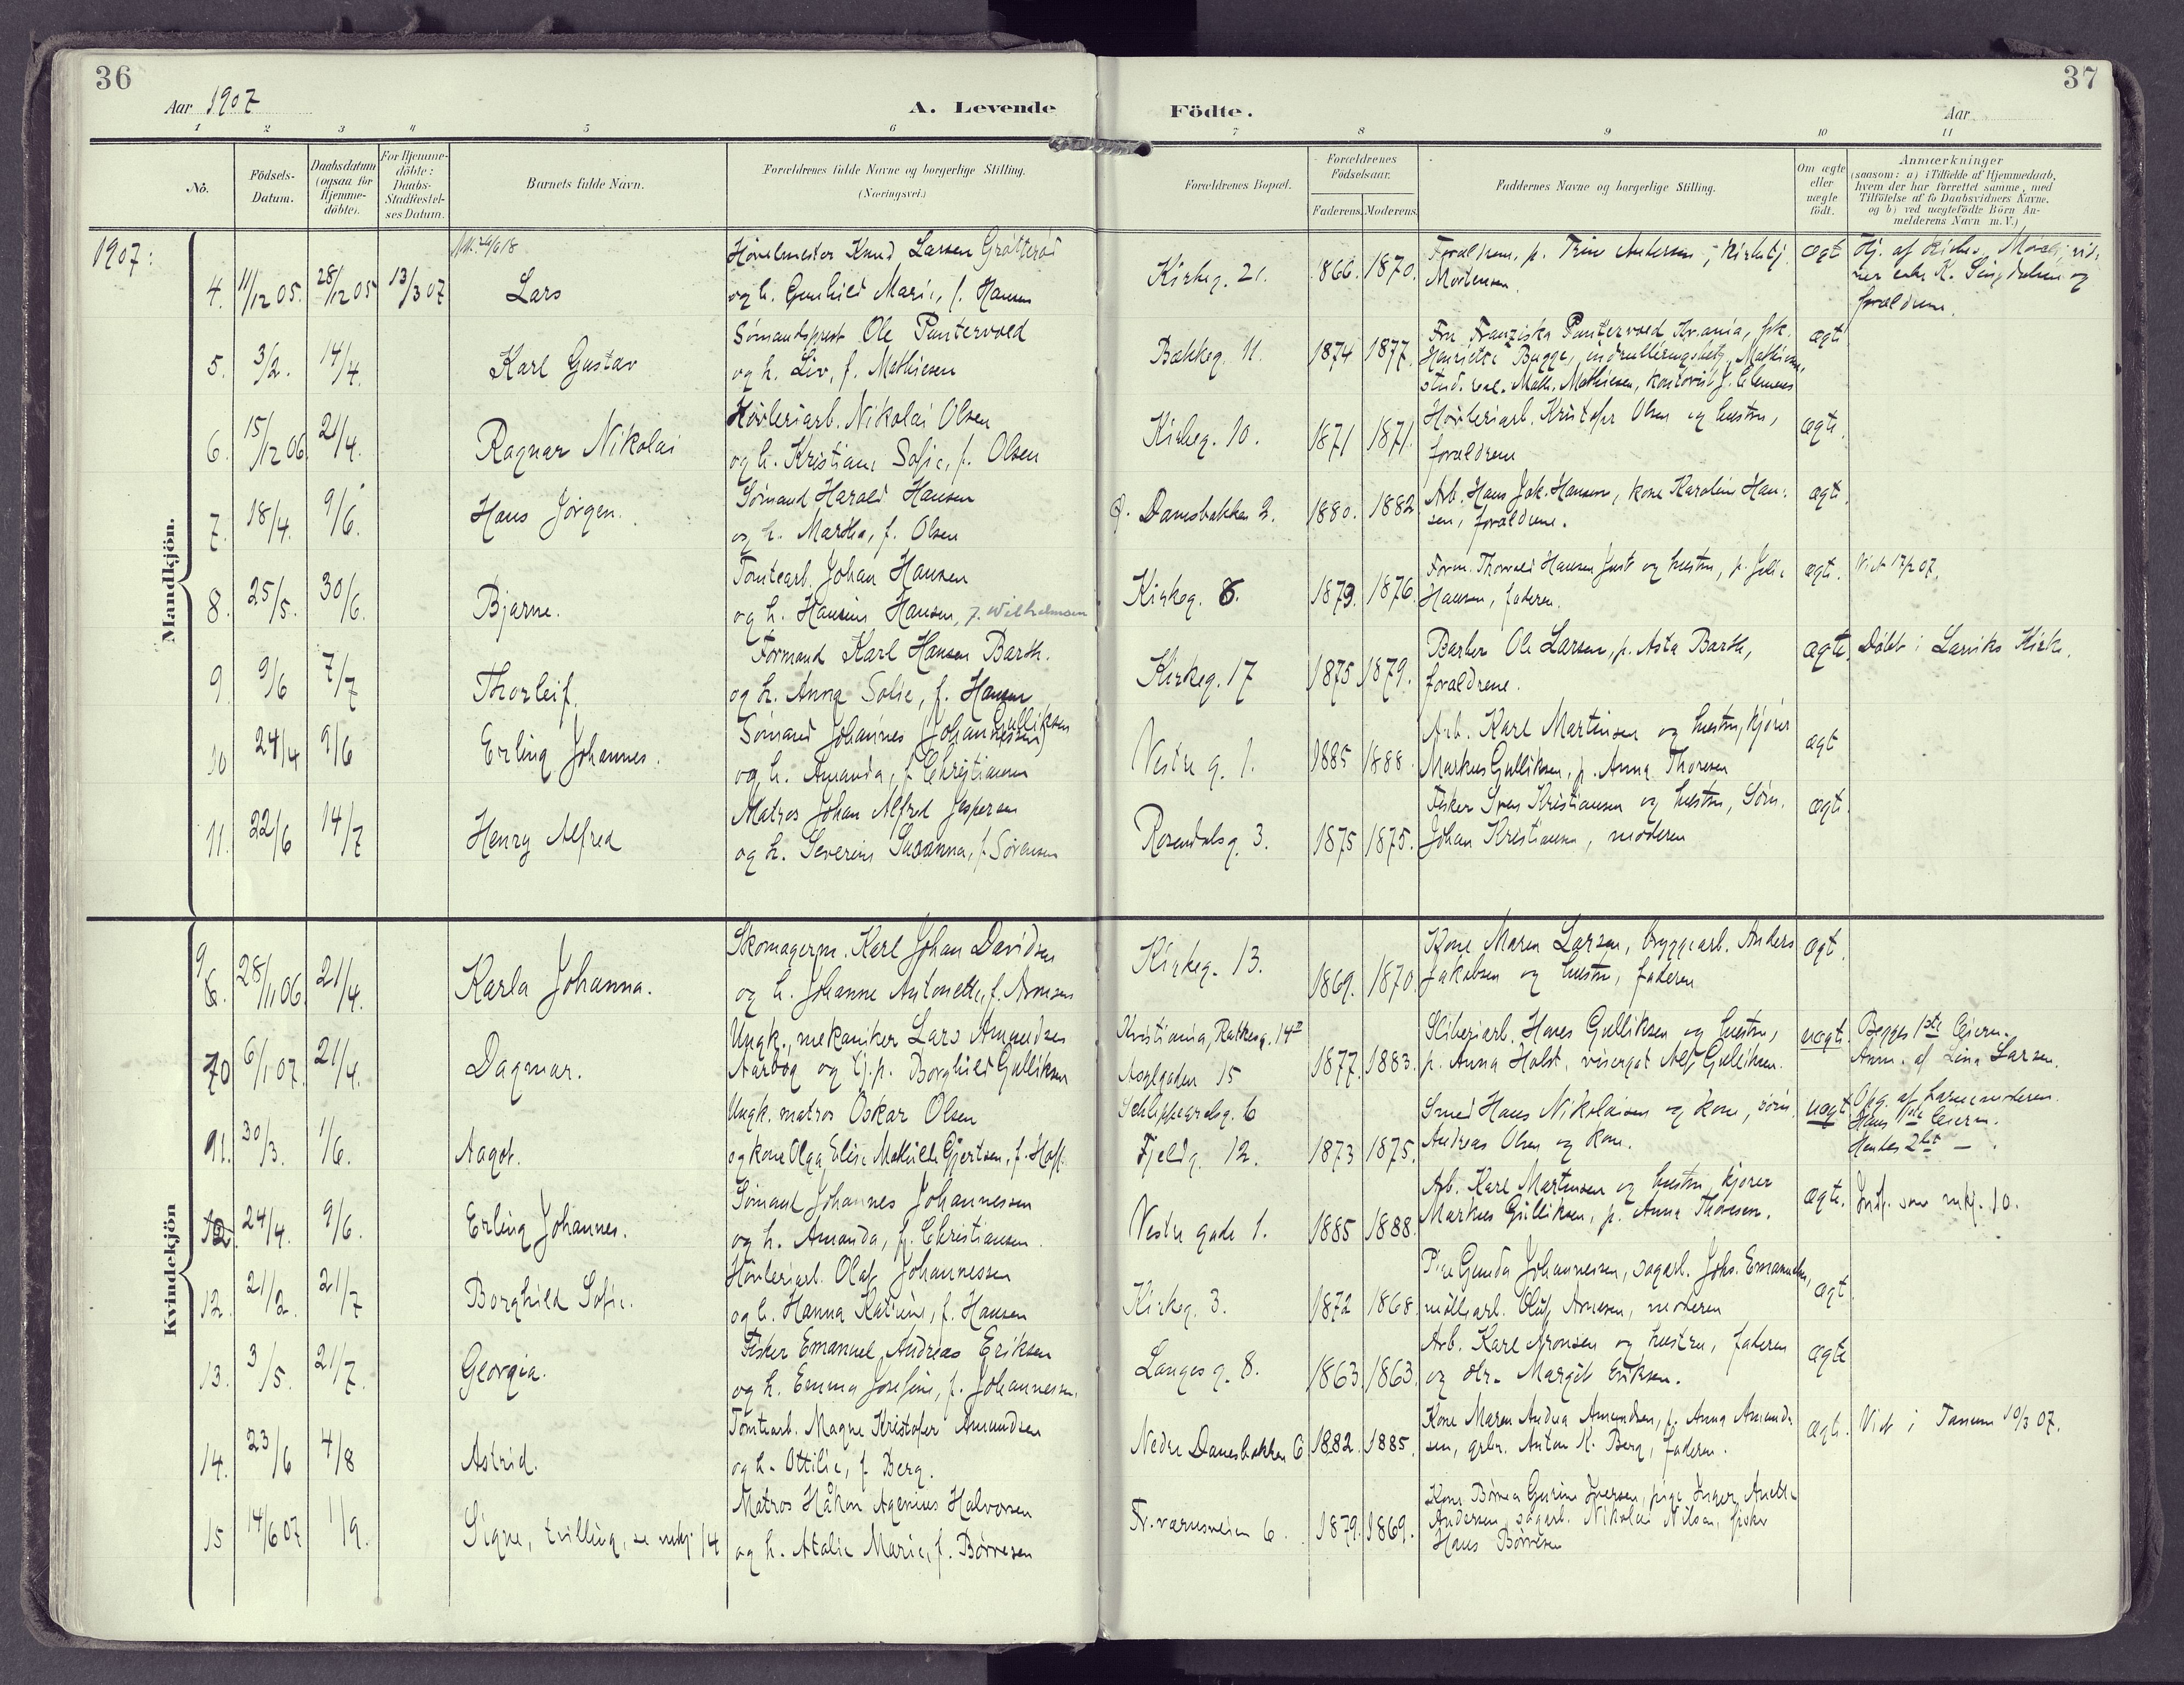 36
37
Aar 1907
A. Levende
Födte.
Aar
1 2 3 4 5 6 7 8 9 10 11
No.
Födsels-
Datum.
Daabsdatum
(ogsaa for
Hjemme-
döbte).
For Hjemme-
döbte:
Daabs-
Stadfæstel-
ses Datum.
Barnets fulde Navn.
Forældrenes fulde Navne og borgerlige Stilling.
(Næringsvei.)
Forældrenes Bopæl.
Forældrenes
Födselsaar.
Faderens. Moderens.
Faddernes Navne og borgerlige Stilling.
Om ægte
eller
uægte
födt.
Anmærkninger
(saasom: a) i Tilfælde af Hjemmedaab,
hvem der har forrettet samme, med
Tilföielse af to Daabsvidners Navne.
og b) ved uægtefödte Börn An-
melderens Navn m. V.)
1907:
Mandkjön.
4. 11/12 05. 28/12 05 13/3 07 Lars
Høvelmester Knud Larsen Grøtterød
og h. Gunhild Marie, f. Hansen
Kirkeg. 21. 1866. 1870.
Forældrene, p. Trine Andersen, kirketj.
Mortensen.
ægt
5. 3/2. 14/4. Karl Gustav
Sømandsprest Ole Pantervold
og h. Liv, f. Mathiesen
Bakkeg. 11. 1874 1877.
Fru Franziska Pantervold Kr.ania, frk.
Henriette Bugge, Mathiesen,
stud. real. Math. Mathiesen, J. Clemens
ægt
6. 15/12 06. 21/4. Ragnar Nikolai
Høvleriarb. Nikolai Olsen
og h. Kristiane Sofie, f. Olsen
Kirkeg. 10. 1871 1871.
Høvleriarb. Kristofer Olsen og hustru,
forældrene
ægte.
7. 18/4. 9/6. Hans Jørgen.
Sømand Harald Hansen
og h. Martha, f. Olsen
Ø. Danesbakken 2. 1880. 1882
Arb. Hans Jak. Hansen, kone Karoline Han-
sen, forældrene.
ægt.
8. 25/5. 30/6. Bjarne.
Tomtearb. Johan Hansen
og h. Hansine Hansen, f. Wilhelmsen
Kirkeg. 8. 1879. 1876.
Form. Thorvald Hansen Just og hustru, p. Julie
Hansen, faderen.
ægte.
Viet 17/2 07.
9 9/6 7/7 Thorleif.
Formand Karl Hansen Barth.
og h. Anna Sofie, f. Hansen
Kirkeg. 17 1875 1879.
Barber Ole Larsen, p. Asta Barth,
forældrene.
ægte.
Døbt i Larviks Kirke.
10 24/4 9/6 Erling Johannes.
Gulliksen
Sømand Johannes (Johannessen)
og h. Amanda, f. Christiansen
Vestre g. 1. 1885 1888.
Arb. Karl Martinsen og hustru, kjører
Markus Gulliksen, p. Anna Thoresen
ægt
11. 22/6 14/7 Henry Alfred
Matros Johan Alfred Jespersen
og h. Severine Susanna, f. Sørensen
Rosendalsg. 3. 1875 1875.
Fisker Sven Kristiansen og hustru, Søm.
Johan Kristiansen, moderen
ægt.
Kvindekjön
9. 28/11 06. 21/4. Karla Johanna.
Skomagerm. Karl Johan Davidsen
og h. Johanne Antonette, f. Aronsen
Kirkeg. 13. 1869. 1870.
Kone Maren Larsen, bryggearb. Anders
Jakobsen og hustru, faderen
ægt.
10 6/1 07. 21/4. Dagmar.
Ungk., mekaniker Lars Amundsen
Aarbog og tj.p. Borghild Gulliksen
Kristiania, Rathkesg. 14
Asylgaden 15 1877. 1883.
Sliberiarb. Hans Gulliksen og hustru,
p. Anna Holst, visergut Alf Gulliksen.
uægt.
Begges 1ste leierm.
Anm. af Lina Larsen.
11. 30/3. 1/6. Aagot.
Ungk. matros Oskar Olsen
og kone Olga Elise Mathilde Gjertsen, f. Hoff.
Schlippeardsg. 6
Fjeldg. 12. 1873 1875.
Smed Hans Nikolaisen og kone, søm.
Andreas Olsen og kone.
uægt
Opg. af barnemoderen.
Hans 1ste leierm.
Hendes 2det — .
12. 24/4. 9/6. Erling Johannes.
Sømand Johannes Johannessen
og h. Amanda, f. Christiansen.
Vestre gade 1. 1885 1888
Arb. Karl Martinsen og hustru, kjører
Markus Gulliksen, p. Anna Thoresen.
ægte.
Indf. som mkj. 10.
12. 21/2. 21/7 Borghild Sofie.
Høvleriarb. Olaf Johannessen
og h. Hanna Katrine, f. Hansen
Kirkeg. 3. 1872 1868.
Pike Gunda Johannesen, sagarb. Johs. Emanuelsen,
møllearb. Oluf Arnesen, moderen
ægt
13. 3/5. 21/7. Georgia.
Fisker Emanuel Andreas Eriksen
og h. Emma Josefine, f. Johannesen.
Langes g. 8. 1863. 1863.
Arb. Karl Aronsen og hustru, faderen
og dtr. Margit Eriksen.
ægte
14. 23/6 4/8 Astrid.
Tomtearb. Magne Kristofer Amundsen
og h. Ottilie, f. Berg.
Nedre Danesbakken 6 1882. 1885.
Kone Maren Andrea Amundsen, p. Anna Amund-
sen, grbr. Anton K. Berg, faderen.
ægte.
Viet i Tanum 10/3 07.
15 14/6 07 1/9. Signe, tvilling, se mkj. 14
Matros Håkon Agenius Halvorsen
og h. Atalie Marie, f. Børresen
Fr.værnsveien 6. 1879. 1869.
Kone Børrea Gurine Iversen, pige Inger Anette
Andersen, sagarb. Nikolai Nilsen, fisker
Hans Børresen